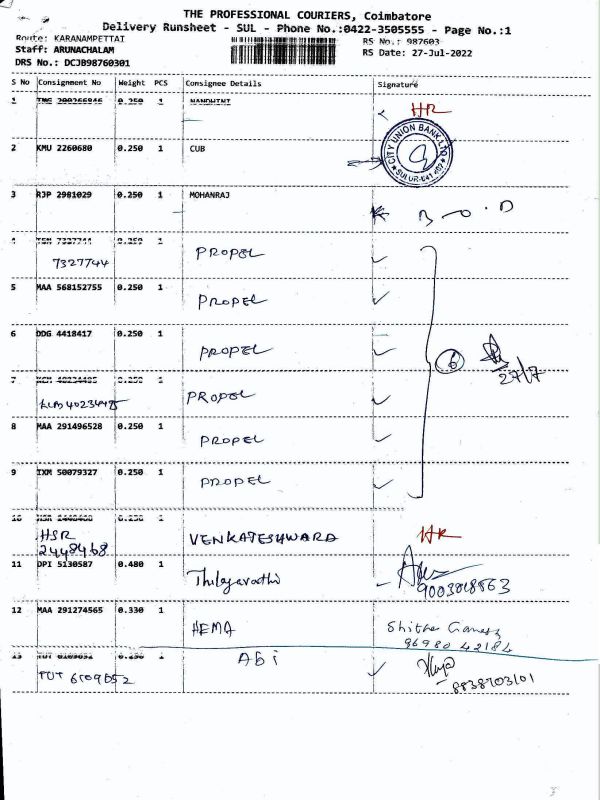 THE PROFESSIONAL COURIERS, Coimbatore
Delivery Runsheet - SUL - Phone No.:0422-3505555 - Page No.:1
Route: KARANAMPETTAI
RS No.: 987603
Staff: ARUNACHALAM
RS Date: 27-Jul-2022
DRS No.: DCJB98760301
S No Consignment No Weight PCS Consignee Details Signature
1 0.250 1 NANDHINI HR
2 KMU 2260680 0.250 1 CUB
CITY UNION BANK LTD
SULUR-641 402
3 RJP 2981029 0.250 1 MOHANRAJ
4 7327744 0.250 1 PROPEL
7327744
5 MAA 568152755 0.250 1 PROPEL
6 DDG 4418417 0.250 1 PROPEL
6
27/7
7 0.250 1 PROPEL
8 MAA 291496528 0.250 1 PROPEL
9 IXM 50079327 0.250 1 PROPEL
10 HSR 2448468 0.250 1 VENKATESHWARA HR
HSR
2448468
11 DPI 5130587 0.480 1
12 MAA 291274565 0.330 1 HEMA
96980 42184
13 TUT 6109652 1 Abi
TUT 6109652
8838703101